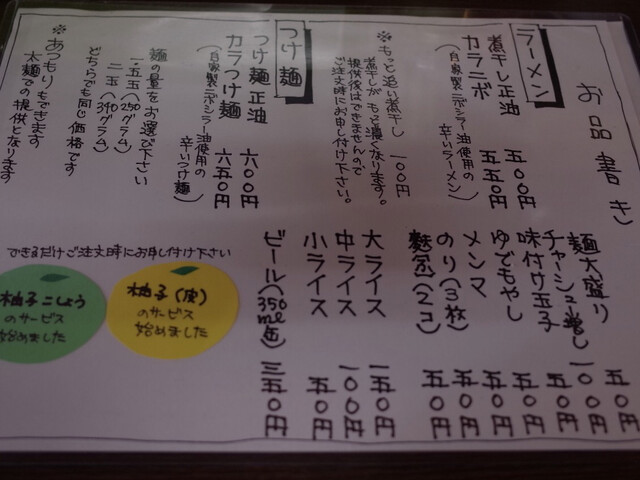 お品書き
ラーメン
煮干し正油 五〇〇円
カラニボ 五五〇円
（自家製ニボシラー油使用の
辛いラーメン）
もっと追い煮干し 一〇〇円
煮干しがもっと濃くなります。
提供後はできませんので
ご注文時にお申し付け下さい。
つけ麺
つけ麺正油 六〇〇円
カラつけ麺 六五〇円
（自家製ニボシラー油使用の
辛いつけ麺）
麺の量をお選び下さい
一・五玉（250グラム）
二玉（340グラム）
どちらでも同じ価格です
※あつもりもできます
太麺での提供となります
麺大盛り 五〇円
チャーシュー増し 一〇〇円
味付け玉子 五〇円
ゆでもやし 五〇円
メンマ 五〇円
のり（3枚） 五〇円
（2コ） 五〇円
大ライス 一五〇円
中ライス 一〇〇円
小ライス 五〇円
ビール（350ml缶） 三五〇円
できるだけご注文時にお申し付け下さい
柚子（皮）
のサービス
始めました
柚子こしょう
のサービス
始めました